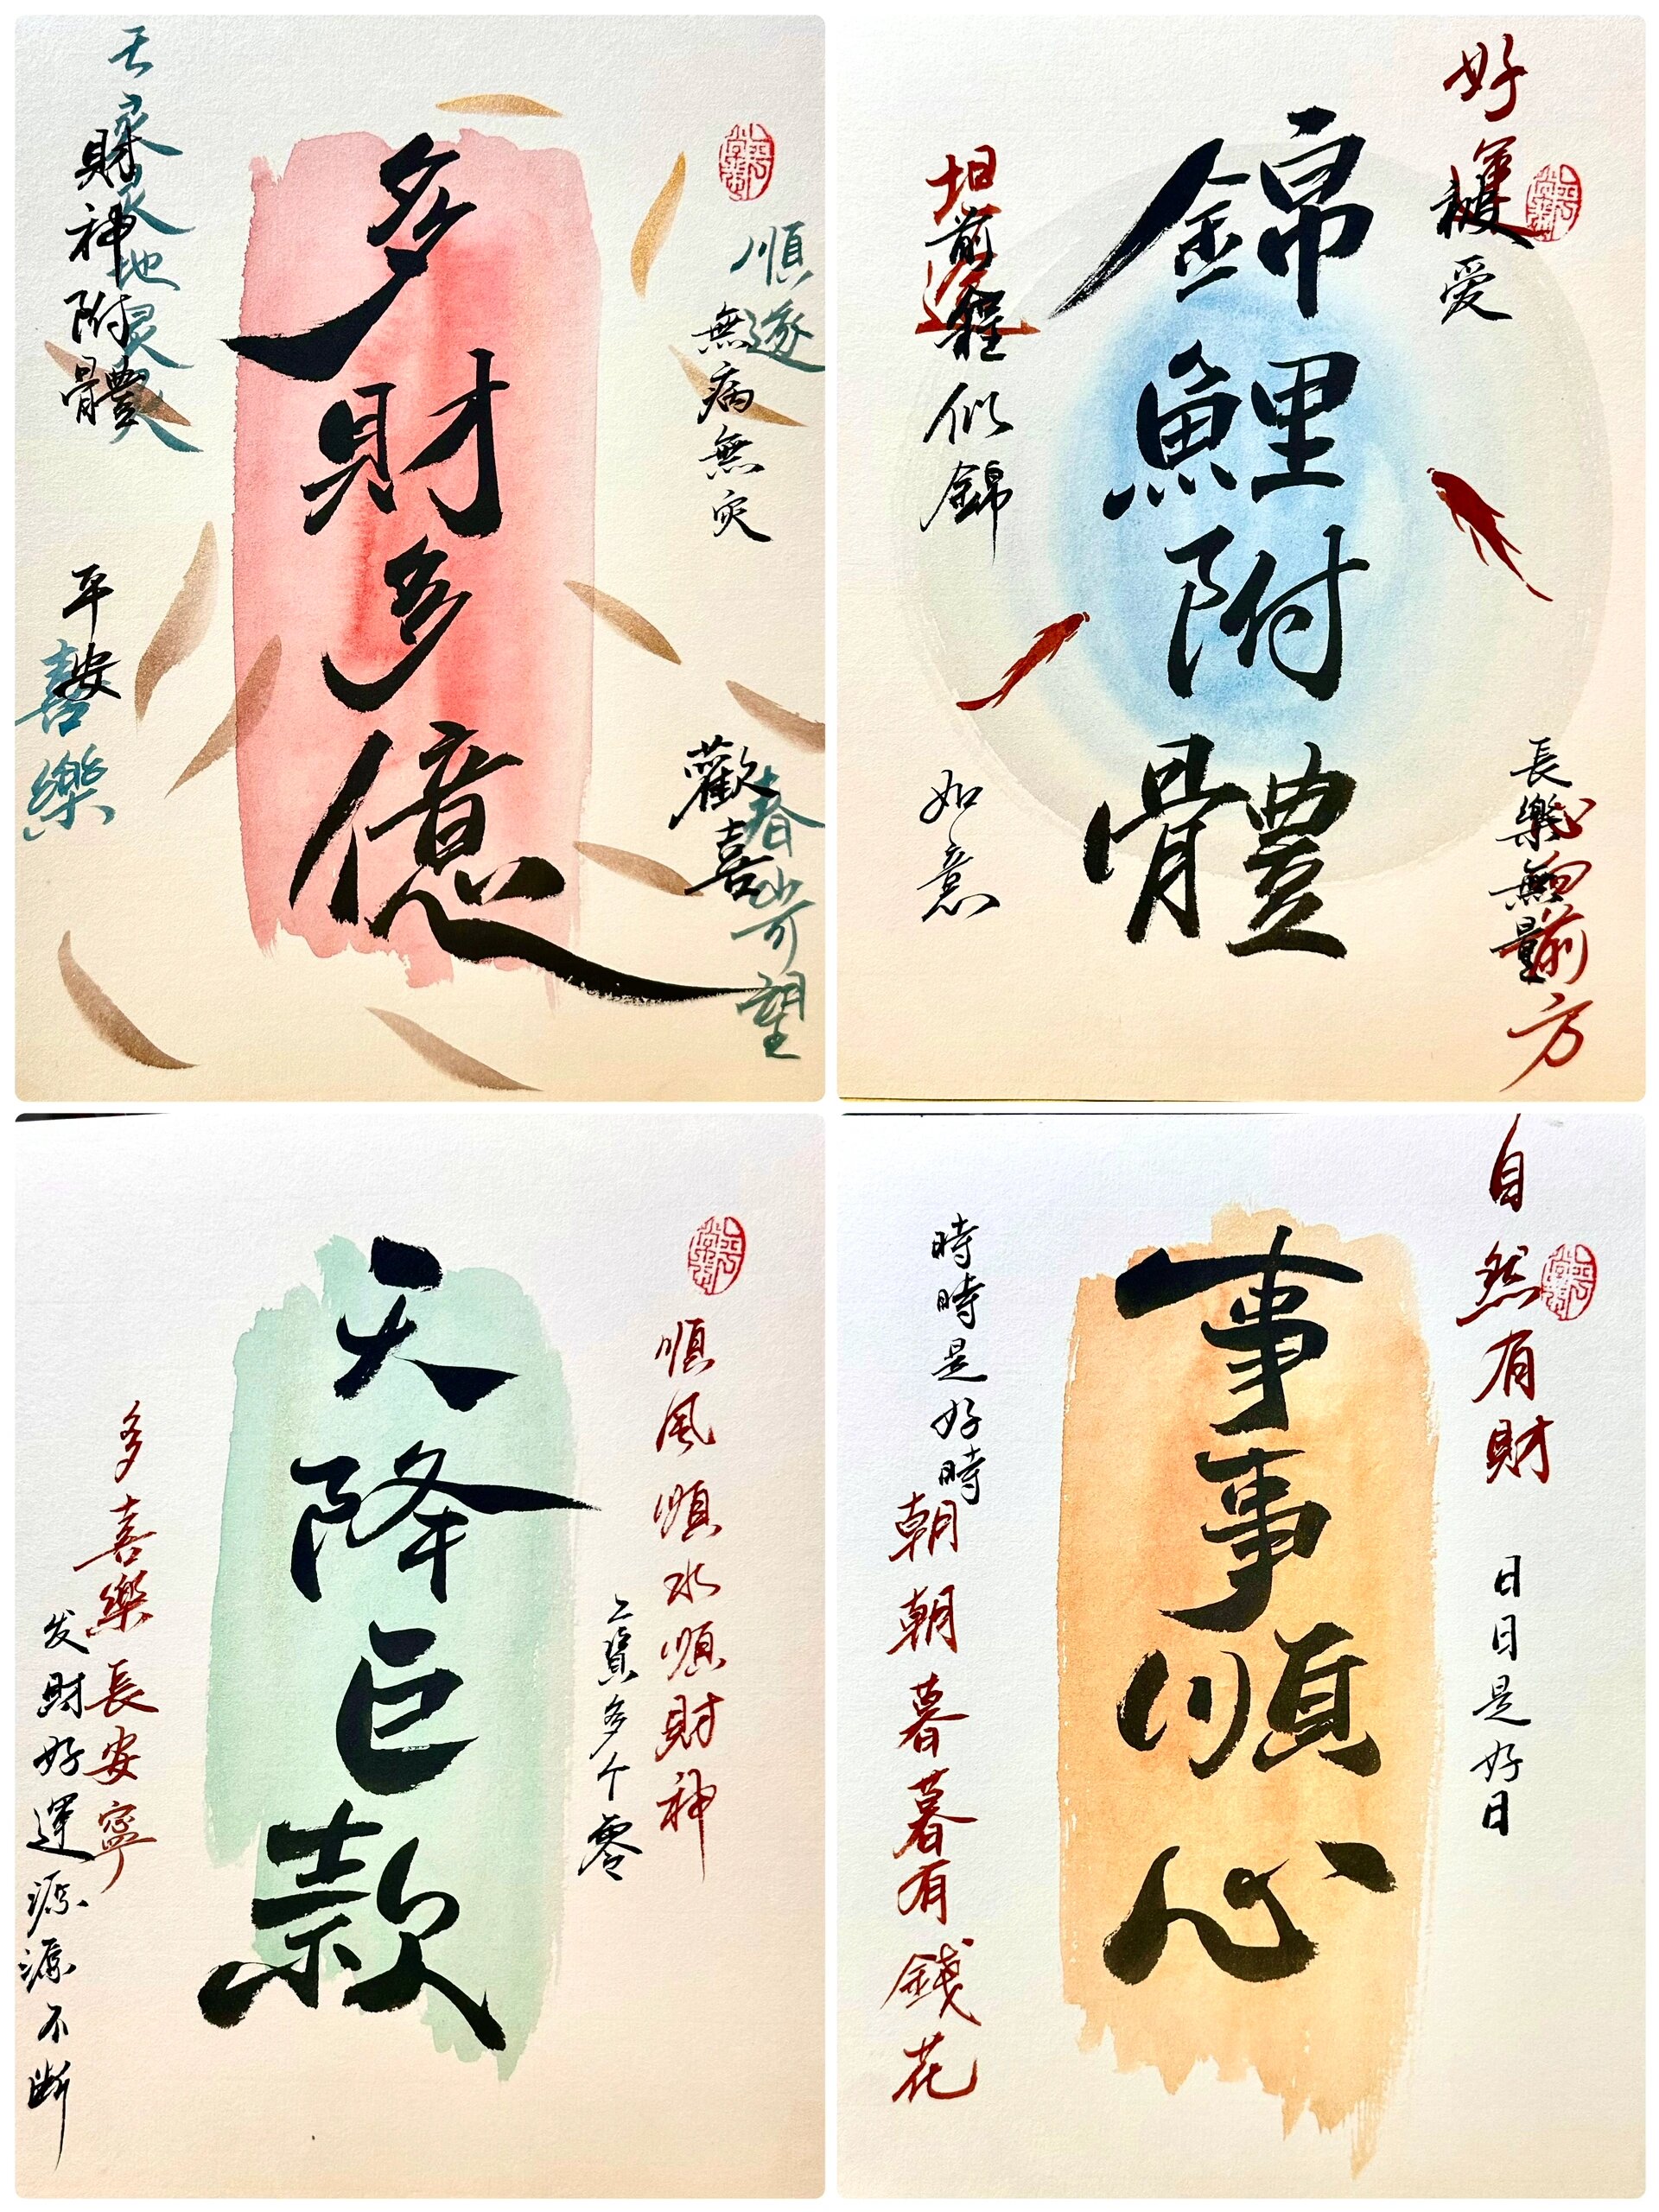 多財多億
順遂
無病無灾
歡喜
春山可望
財神附體
平安
喜樂
錦鯉附體
好運
護爱
長樂無量
心向前方
坦途
前程似錦
如意
天降巨款
順風順水順財神
工資多个零
多喜樂長安寧
发財好運源源不断
事事順心
自然有財
日日是好日
時時是好時
朝朝暮暮有錢花